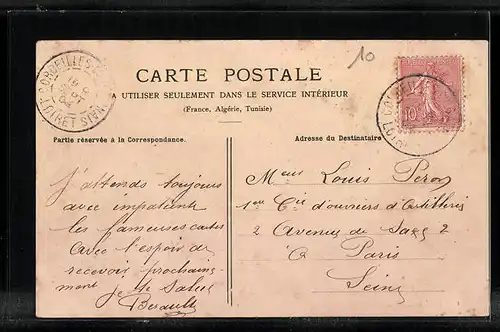 10
CARTE POSTALE
A UTILISER SEULEMENT DANS LE SERVICE INTÉRIEUR
(France, Algérie, Tunisie)
Partie réservée à la Correspondance.
Adresse du Destinataire
J'attends toujours
avec impatience
les fameuses cartes
Avec l'espoir de
recevoir prochaine-
ment je te salue
Berault
Louis Peron
1ère Cie d'ouvriers d'Artillerie
2 Avenue de Saxe 2
à Paris
Seine
CORBEILLES
LOIRET
10